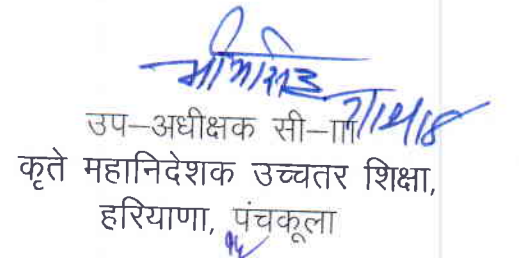 उप–अधीक्षक सी–III
कृते महानिदेशक उच्चतर शिक्षा,
हरियाणा, पंचकूला